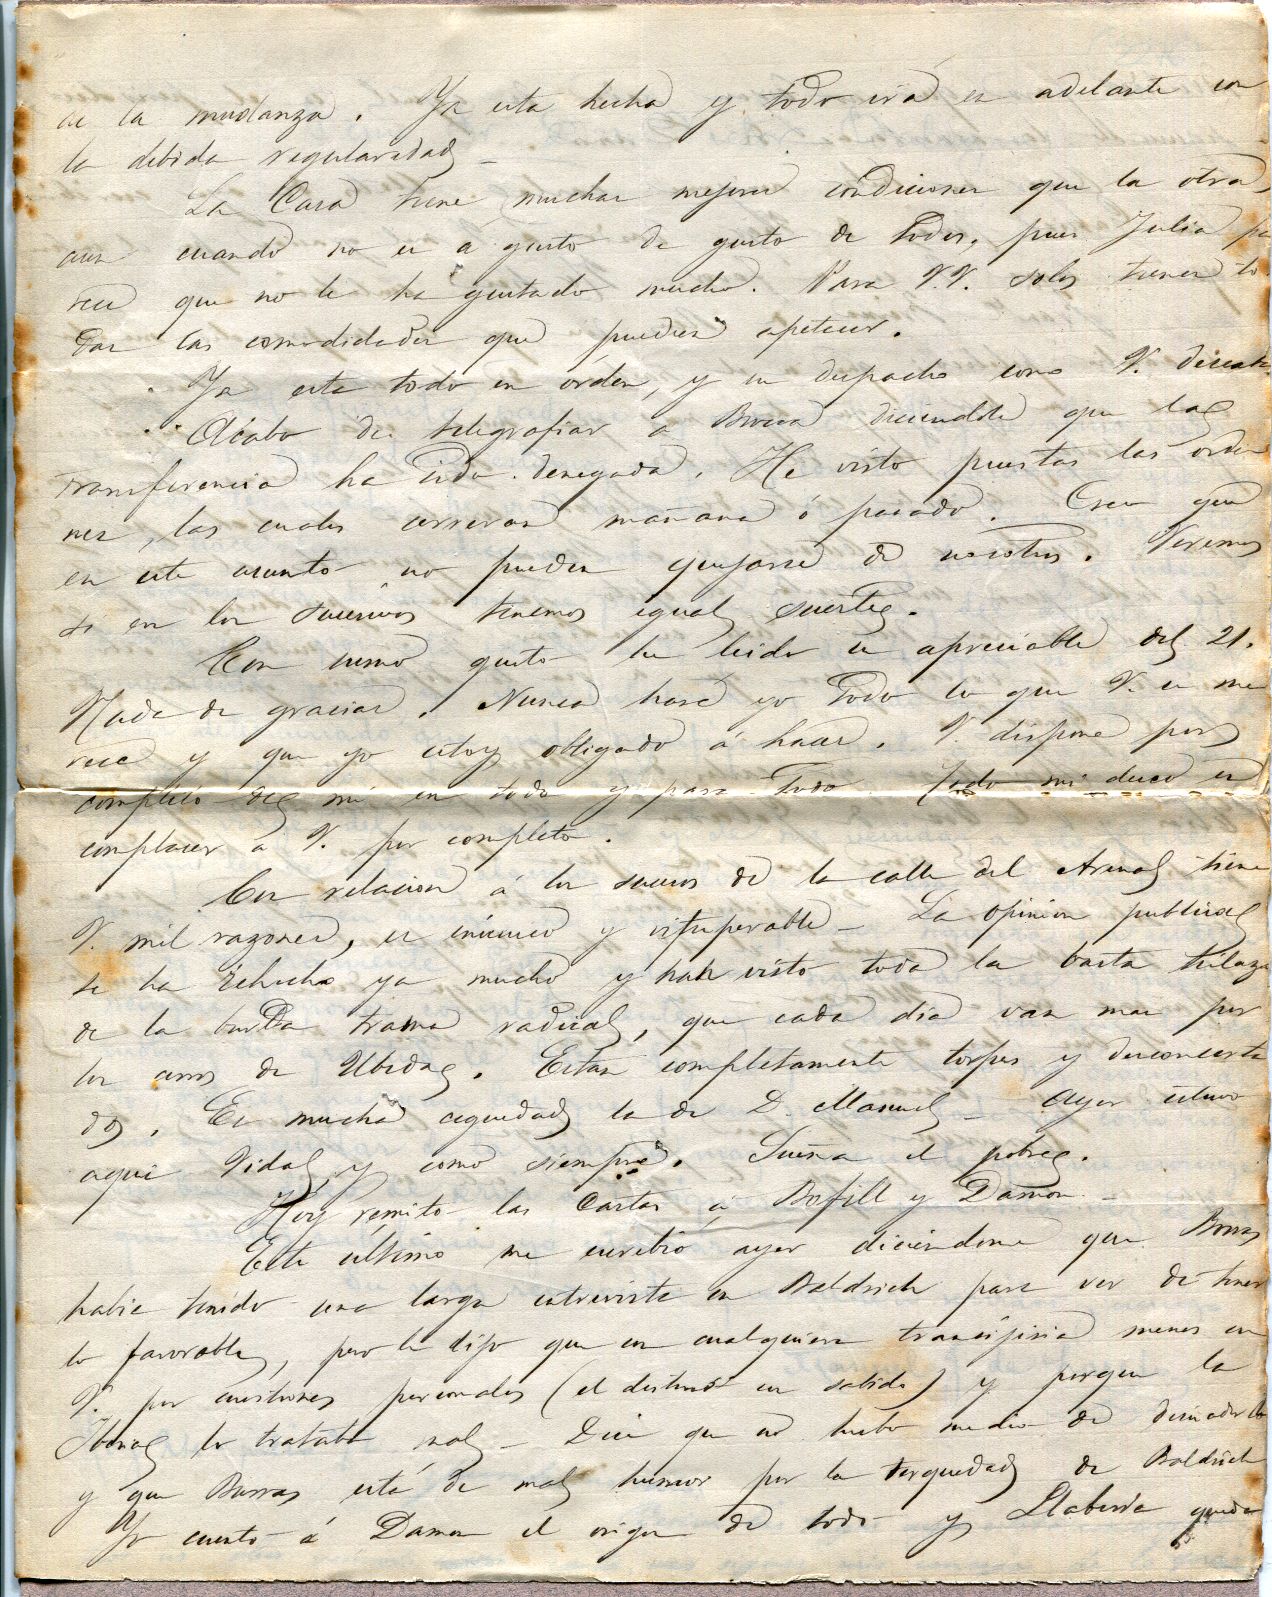 de la mudanza. Ya esta hecha y todo irá en adelante con
la debida regularidad_
La Casa tiene muchas mejores condiciones que la otra,
aun cuando no es á gusto de gusto de todos, pues Julia pa
rece que no le ha gustado mucho. Para V.V. solos tienen to
das las comodidades que pueden apetecer.
Ya esta todo en orden, y su despacho como V. deseaba.
Acabo de telegrafiar a Brocca diciendole que la
transferencia ha sido denegada. He visto puestas las orde
nes, las cuales correran mañana ó pasado. Creo que
en este asunto no pueden quejarse de nosotros. Veremos
si en los sucesivos tenemos igual suerte.
Con sumo gusto he leido su apreciable del 21.
Nada de gracias. Nunca haré yo todo lo que V. se me
rece y que yo estoy obligado á hacer. V. dispone por
completo de mi en todo y para todo. Todo mi deseo es
complacer a V. por completo.
Con relacion á los sucesos de la calle del Arenal tiene
V. mil razones, es inicuo y vituperable_ La opinion publica
se ha hecho ya mucho y han visto toda la basta hilaza
de la burda trama radical, que cada dia van mas por
los cerros de Ubeda. Estan completamente torpes y desconcerta
dos. Es mucha ceguedad la de D. Manuel_ Ayer estuvo
aqui Vidal y como siempre. Sueña el pobre.
Hoy remito las Cartas á Bofill y Damon_
Este último me escribió ayer diciendome que Borras
habia tenido una larga entrevista con Baldrich para ver de tener
lo favorable, pero le dijo que en cualquiera transijiria menos en
V. por cuestiones personales (el distrito en salida) y porque la
Iberia lo trataba mal_ Dice que no hubo medio de disuadirlo
y que Borras está de mal humor por la terquedad de Baldrich
Yo cuento á Damon el origen de todo y Llaberia queda